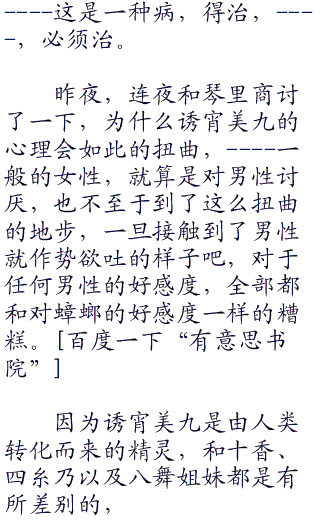 ----这是一种病，得治，---
-，必须治。
昨夜，连夜和琴里商讨
了一下，为什么诱宵美九的
心理会如此的扭曲，----一
般的女性，就算是对男性讨
厌，也不至于到了这么扭曲
的地步，一旦接触到了男性
就作势欲吐的样子吧，对于
任何男性的好感度，全部都
和对蟑螂的好感度一样的糟
糕。[百度一下“有意思书
院”]
因为诱宵美九是由人类
转化而来的精灵，和十香、
四糸乃以及八舞姐妹都是有
所差别的，